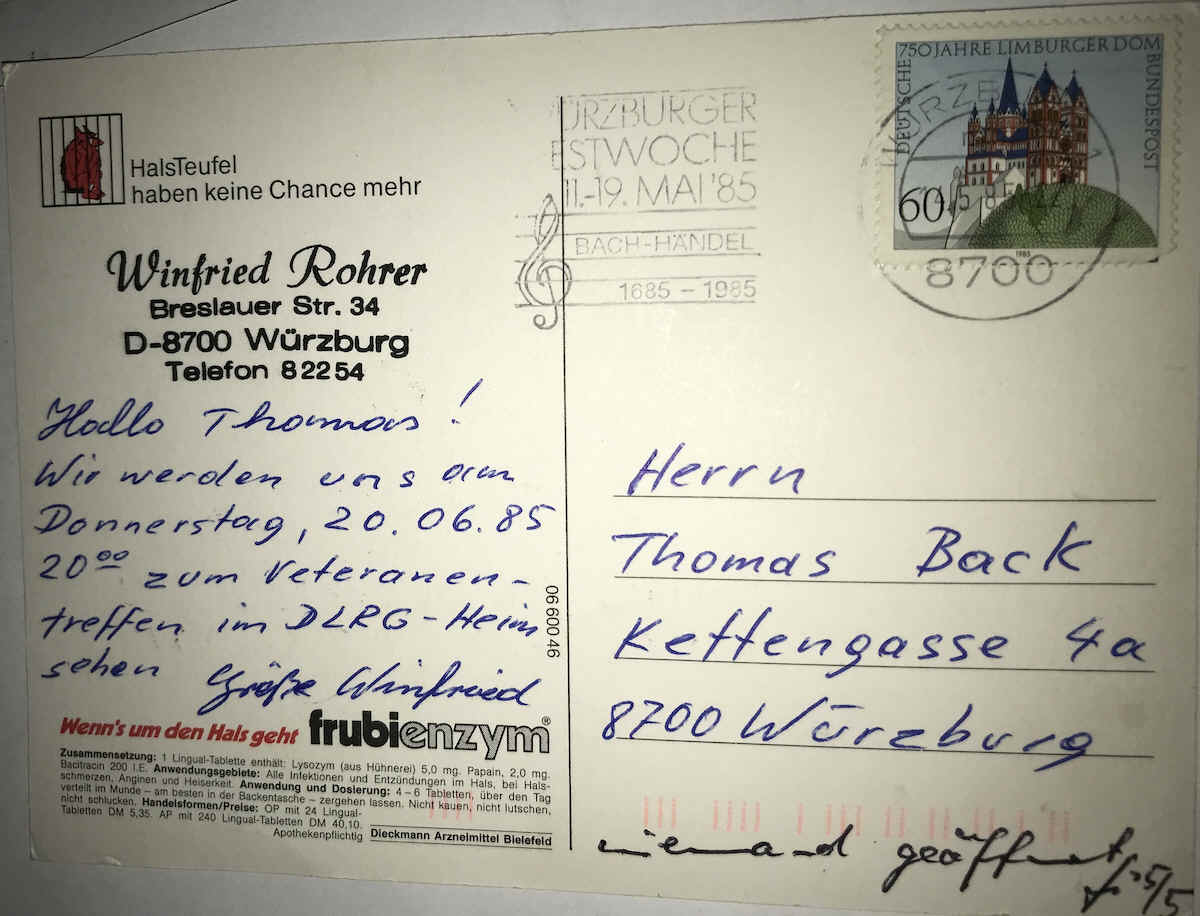 HalsTeufel
haben keine Chance mehr
Winfried Rohrer
Breslauer Str. 34
D-8700 Würzburg
Telefon 82254
Hallo Thomas!
Wir werden uns am
Donnerstag, 20.06.85
20⁰⁰ zum Veteranen-
treffen im DLRG-Heim
sehen Grüße Winfried
06 600 46
Wenn's um den Hals geht frubienzym®
Zusammensetzung: 1 Lingual-Tablette enthält: Lysozym (aus Hühnerei) 5,0 mg. Papain, 2,0 mg.
Bacitracin 200 I.E. Anwendungsgebiete: Alle Infektionen und Entzündungen im Hals, bei Hals-
schmerzen, Anginen und Heiserkeit. Anwendung und Dosierung: 4–6 Tabletten, über den Tag
verteilt im Munde – am besten in der Backentasche – zergehen lassen. Nicht kauen, nicht lutschen,
nicht schlucken. Handelsformen/Preise: OP mit 24 Lingual-
Tabletten DM 5,35. AP mit 240 Lingual-Tabletten DM 40,10.
Apothekenpflichtig
Dieckmann Arzneimittel Bielefeld
ÜRZBURGER
ESTWOCHE
11.-19. MAI '85
BACH-HÄNDEL
1685 – 1985
750 JAHRE LIMBURGER DOM
DEUTSCHE
BUNDESPOST
60
1985
8700
Herrn
Thomas Back
Kettengasse 4a
8700 Würzburg
niemand geöffnet